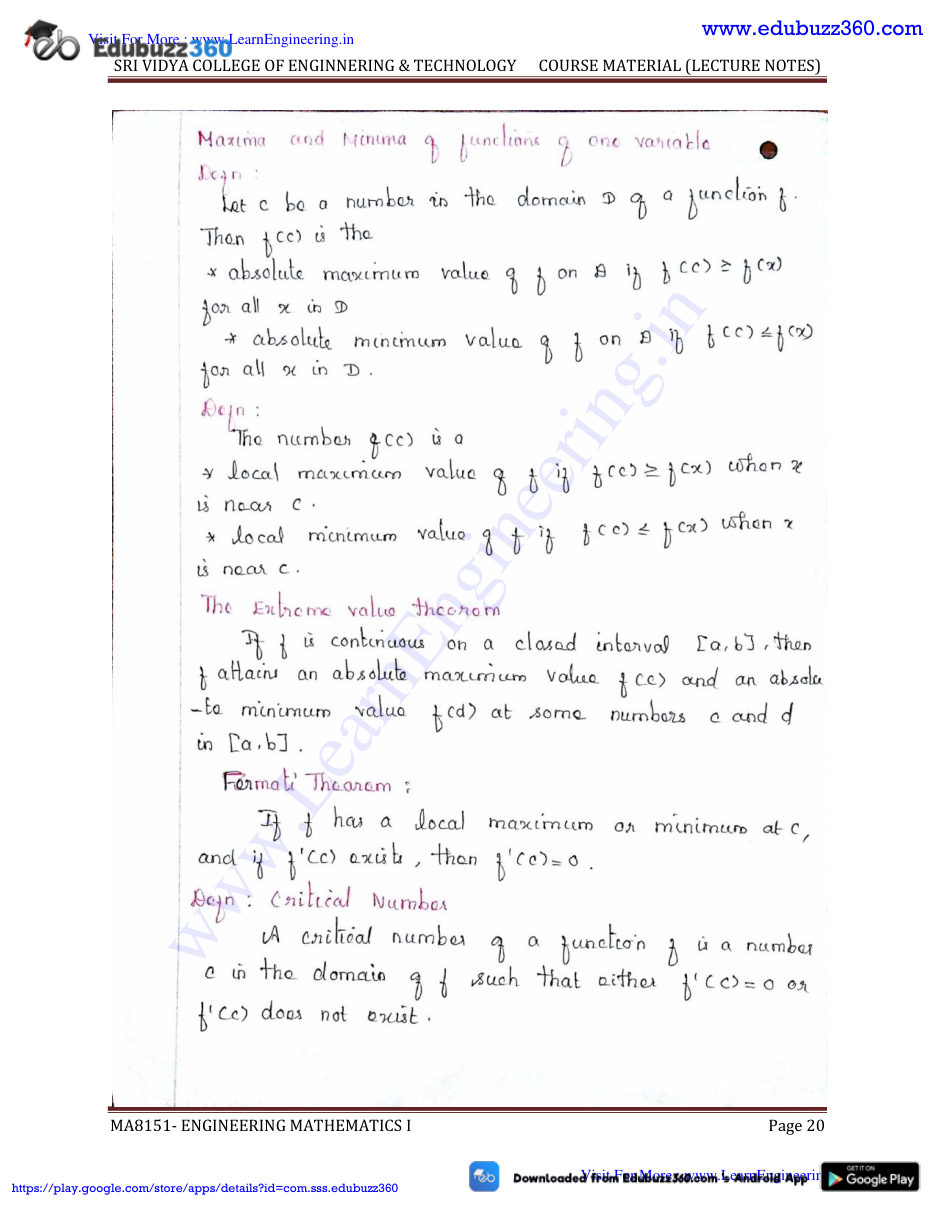 www.edubuzz360.com
Visit For More : www.LearnEngineering.in
Edubuzz360
SRI VIDYA COLLEGE OF ENGINNERING & TECHNOLOGY COURSE MATERIAL (LECTURE NOTES)
Maxima and Minima of functions of one variable
Defn :
Let c be a number in the domain D of a function f.
Then f(c) is the
* absolute maximum value of f on D if f(c) ≥ f(x)
for all x in D
* absolute minimum value of f on D if f(c) ≤ f(x)
for all x in D.
Defn :
The number f(c) is a
* local maximum value of f if f(c) ≥ f(x) when x
is near c.
* local minimum value of f if f(c) ≤ f(x) when x
is near c.
The Extreme value theorem
If f is continuous on a closed interval [a,b], then
f attains an absolute maximum value f(c) and an absolu
-te minimum value f(d) at some numbers c and d
in [a,b].
Fermat' Theorem :
If f has a local maximum or minimum at c,
and if f'(c) exists, then f'(c)=0.
Defn : Critical Number
A critical number of a function f is a number
c in the domain of f such that either f'(c)=0 or
f'(c) does not exist.
www.LearnEngineering.in
MA8151- ENGINEERING MATHEMATICS I Page 20
https://play.google.com/store/apps/details?id=com.sss.edubuzz360
Downloaded from EduBuzz360.com 's Android App
Visit For More : www.LearnEngineerin
GET IT ON
Google Play